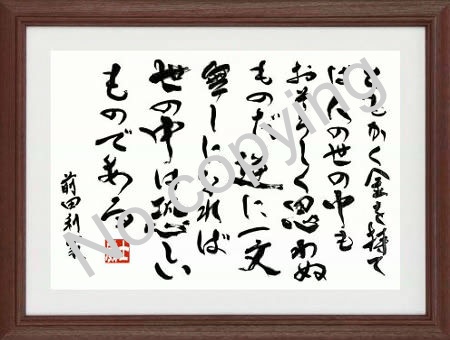 ともかく金を持て
ば人の世の中も
おそろしく思わぬ
ものだ 逆に一文
無しになれば
世の中は恐しい
ものである
前田利家
No copying